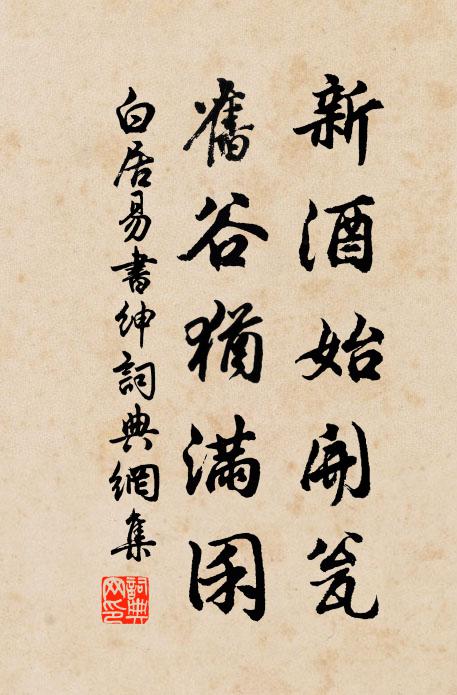 新酒始開瓮
舊谷猶滿囷
白居易書紳詞典網集
詞典
网印